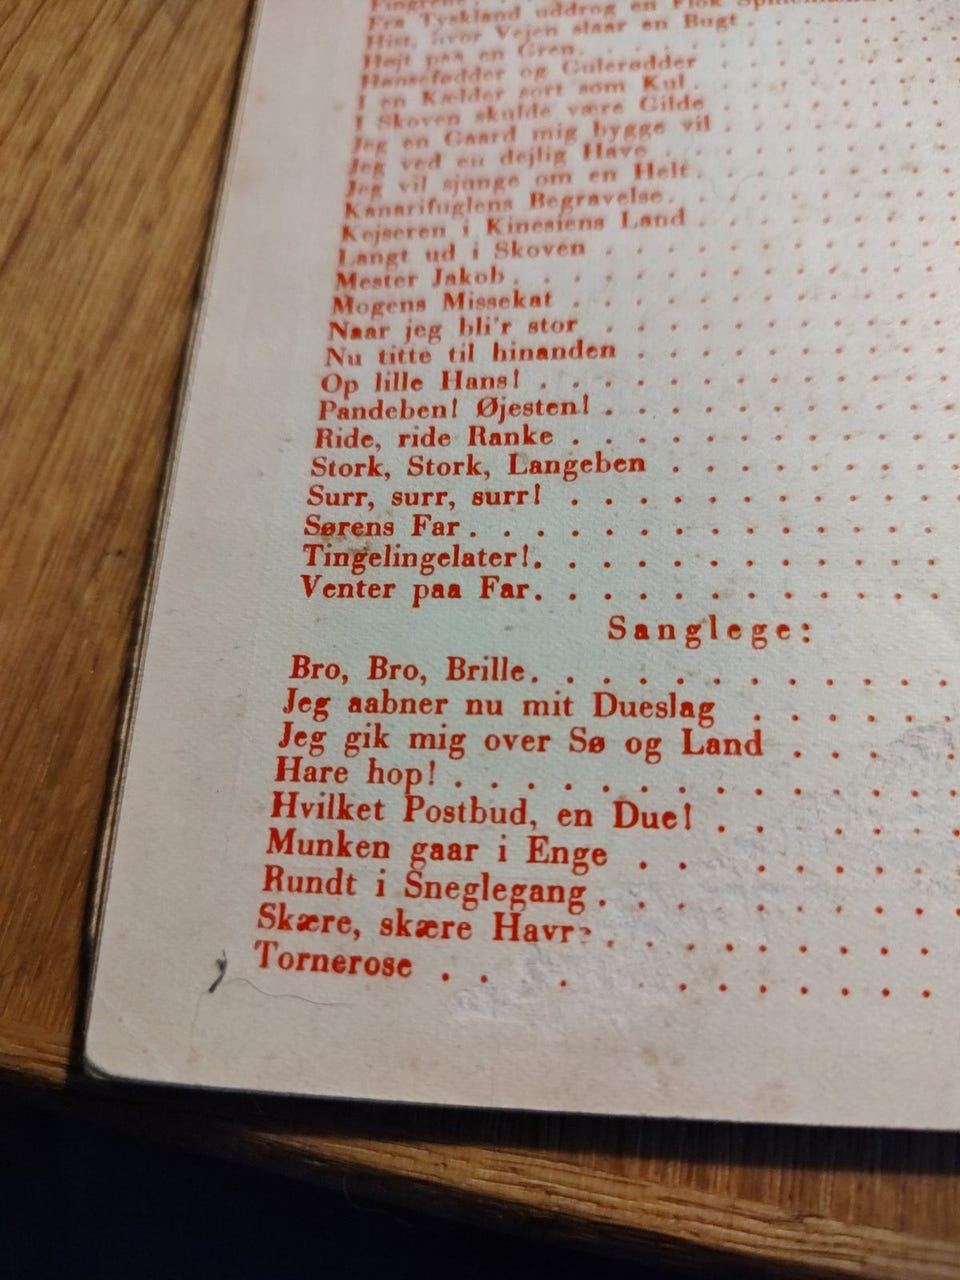 Fingrene
Fra Tyskland uddrog en Flok
Hist, hvor Vejen slaar en Bugt . . . .
Højt paa en Gren. . . . . .
Hønsefødder og Gulerødder . . . . .
I en Kælder sort som Kul. . . . . .
I Skoven skulde være Gilde . . . . .
Jeg en Gaard mig bygge vil . . . . .
Jeg ved en dejlig Have . . . . . .
Jeg vil sjunge om en Helt. . . . . .
Kanarifuglens Begravelse. . . . . .
Kejseren i Kinesiens Land . . . . . .
Langt ud i Skoven . . . . . . . .
Mester Jakob. . . . . . . . . .
Mogens Missekat . . . . . . . . .
Naar jeg bli'r stor . . . . . . . .
Nu titte til hinanden . . . . . . .
Op lille Hans! . . . . . . . . .
Pandeben! Øjesten! . . . . . . . .
Ride, ride Ranke . . . . . . . . .
Stork, Stork, Langeben . . . . . . .
Surr, surr, surr! . . . . . . . . .
Sørens Far . . . . . . . . . . .
Tingelingelater!. . . . . . . . . .
Venter paa Far. . . . . . . . . .
Sanglege:
Bro, Bro, Brille. . . . . . . . . . .
Jeg aabner nu mit Dueslag . . . . .
Jeg gik mig over Sø og Land . . . .
Hare hop! . . . . . . . . . . .
Hvilket Postbud, en Due! . . . . . .
Munken gaar i Enge . . . . . . .
Rundt i Sneglegang . . . . . . . .
Skære, skære Havre . . . . . . . .
Tornerose . . . . . . . . . .